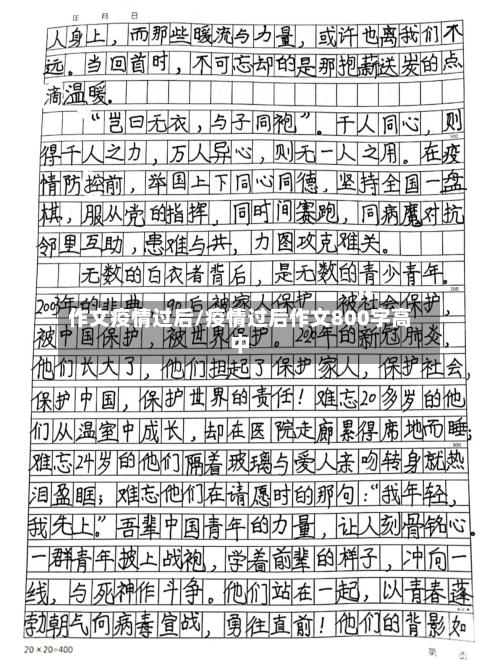 年 月 日
人身上，而那些暖流与力量，或许也离我们不
远。当回首时，不可忘却的是那抱薪送炭的点
滴温暖.
“岂曰无衣，与子同袍”。千人同心，则
100
得千人之力，万人异心，则无一人之用。在疫
情防控前，举国上下同心同德，坚持全国一盘
棋，服从党的指挥，同时间赛跑，同病魔对抗
邻里互助，患难与共，力图攻克难关。
无数的白衣者背后，是无数的青少年。
200
2003年的非典，90后被家人保护，被社会保护，
作文疫情过后/疫情过后作文800字高
中
被中国保护，被世界保护。2020年的新冠肺炎，
他们长大了，他们担起了保护家人，保护社会，
保护中国，保护世界的责任！难忘20多岁的他
们从温室中成长，却在医院走廊累得席地而睡；
300
难忘24岁的他们隔着玻璃与爱人亲吻转身就热
泪盈眶；难忘他们在请愿时的那句：“我年轻，
我先上。”吾辈中国青年的力量，让人刻骨铭心。
一群青年披上战袍，学着前辈的样子，冲向一
线，与死神作斗争。他们站在一起，以青春蓬
勃朝气向病毒宣战，勇往直前！他们的背影如
20×20=400
第 面